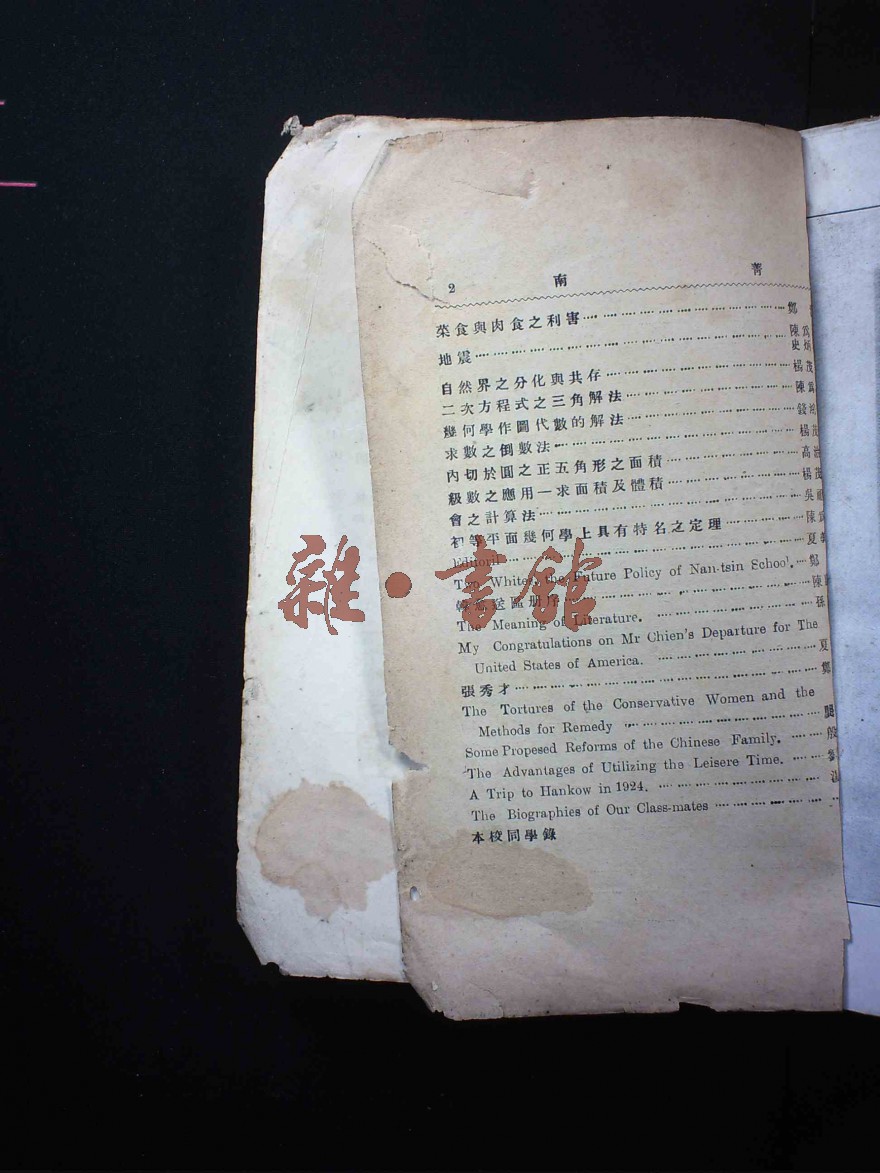 2 南 菁
菜食與肉食之利害 鄭
地震 陳爲
史
自然界之分化與共存 楊茂
二次方程式之三角解法 陳爲
幾何學作圖代數的解法 錢
求數之倒數法 楊茂
內切於圓之正五角形之面積 高
級數之應用—求面積及體積 楊茂
會之計算法 吳
初等平面幾何學上具有特名之定理 陳爲
Editoril 夏
White, the Future Policy of Nan-tsin School. 鄭
陳
The Meaning of Literature. 孫
My Congratulations on Mr Chien's Departure for The
United States of America. 夏
張秀才 鄭
The Tortures of the Conservative Women and the
Methods for Remedy
Some Propesed Reforms of the Chinese Family. 殷
The Advantages of Utilizing the Leisere Time.
A Trip to Hankow in 1924.
The Biographies of Our Class-mates
本校同學錄
雜·書館